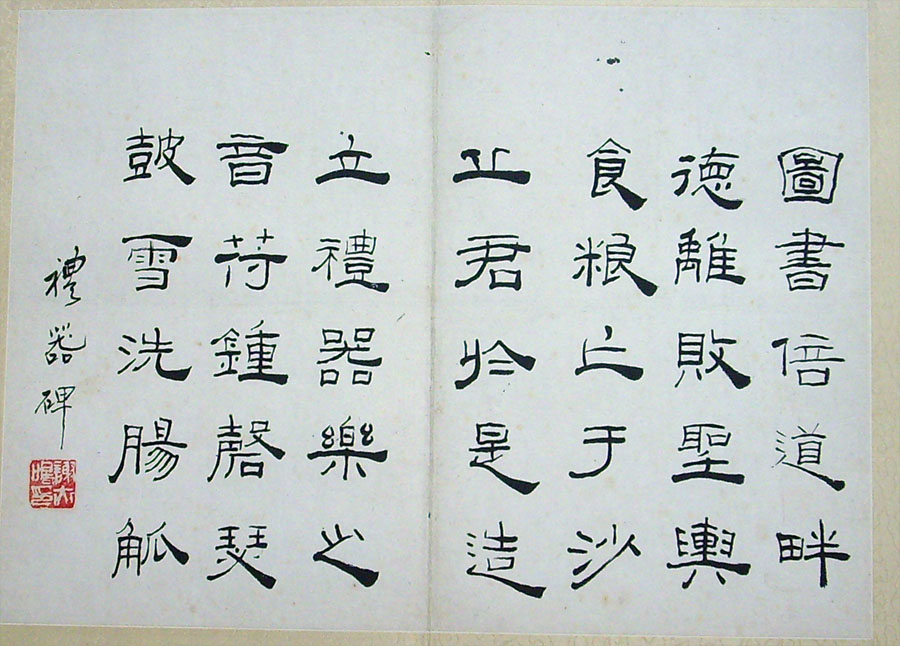 圖書倍道畔
德離敗聖輿
食粮亡于沙
丘君於是造
立禮器樂之
音苻鍾磬瑟
皷雪洗腸觚
禮器碑